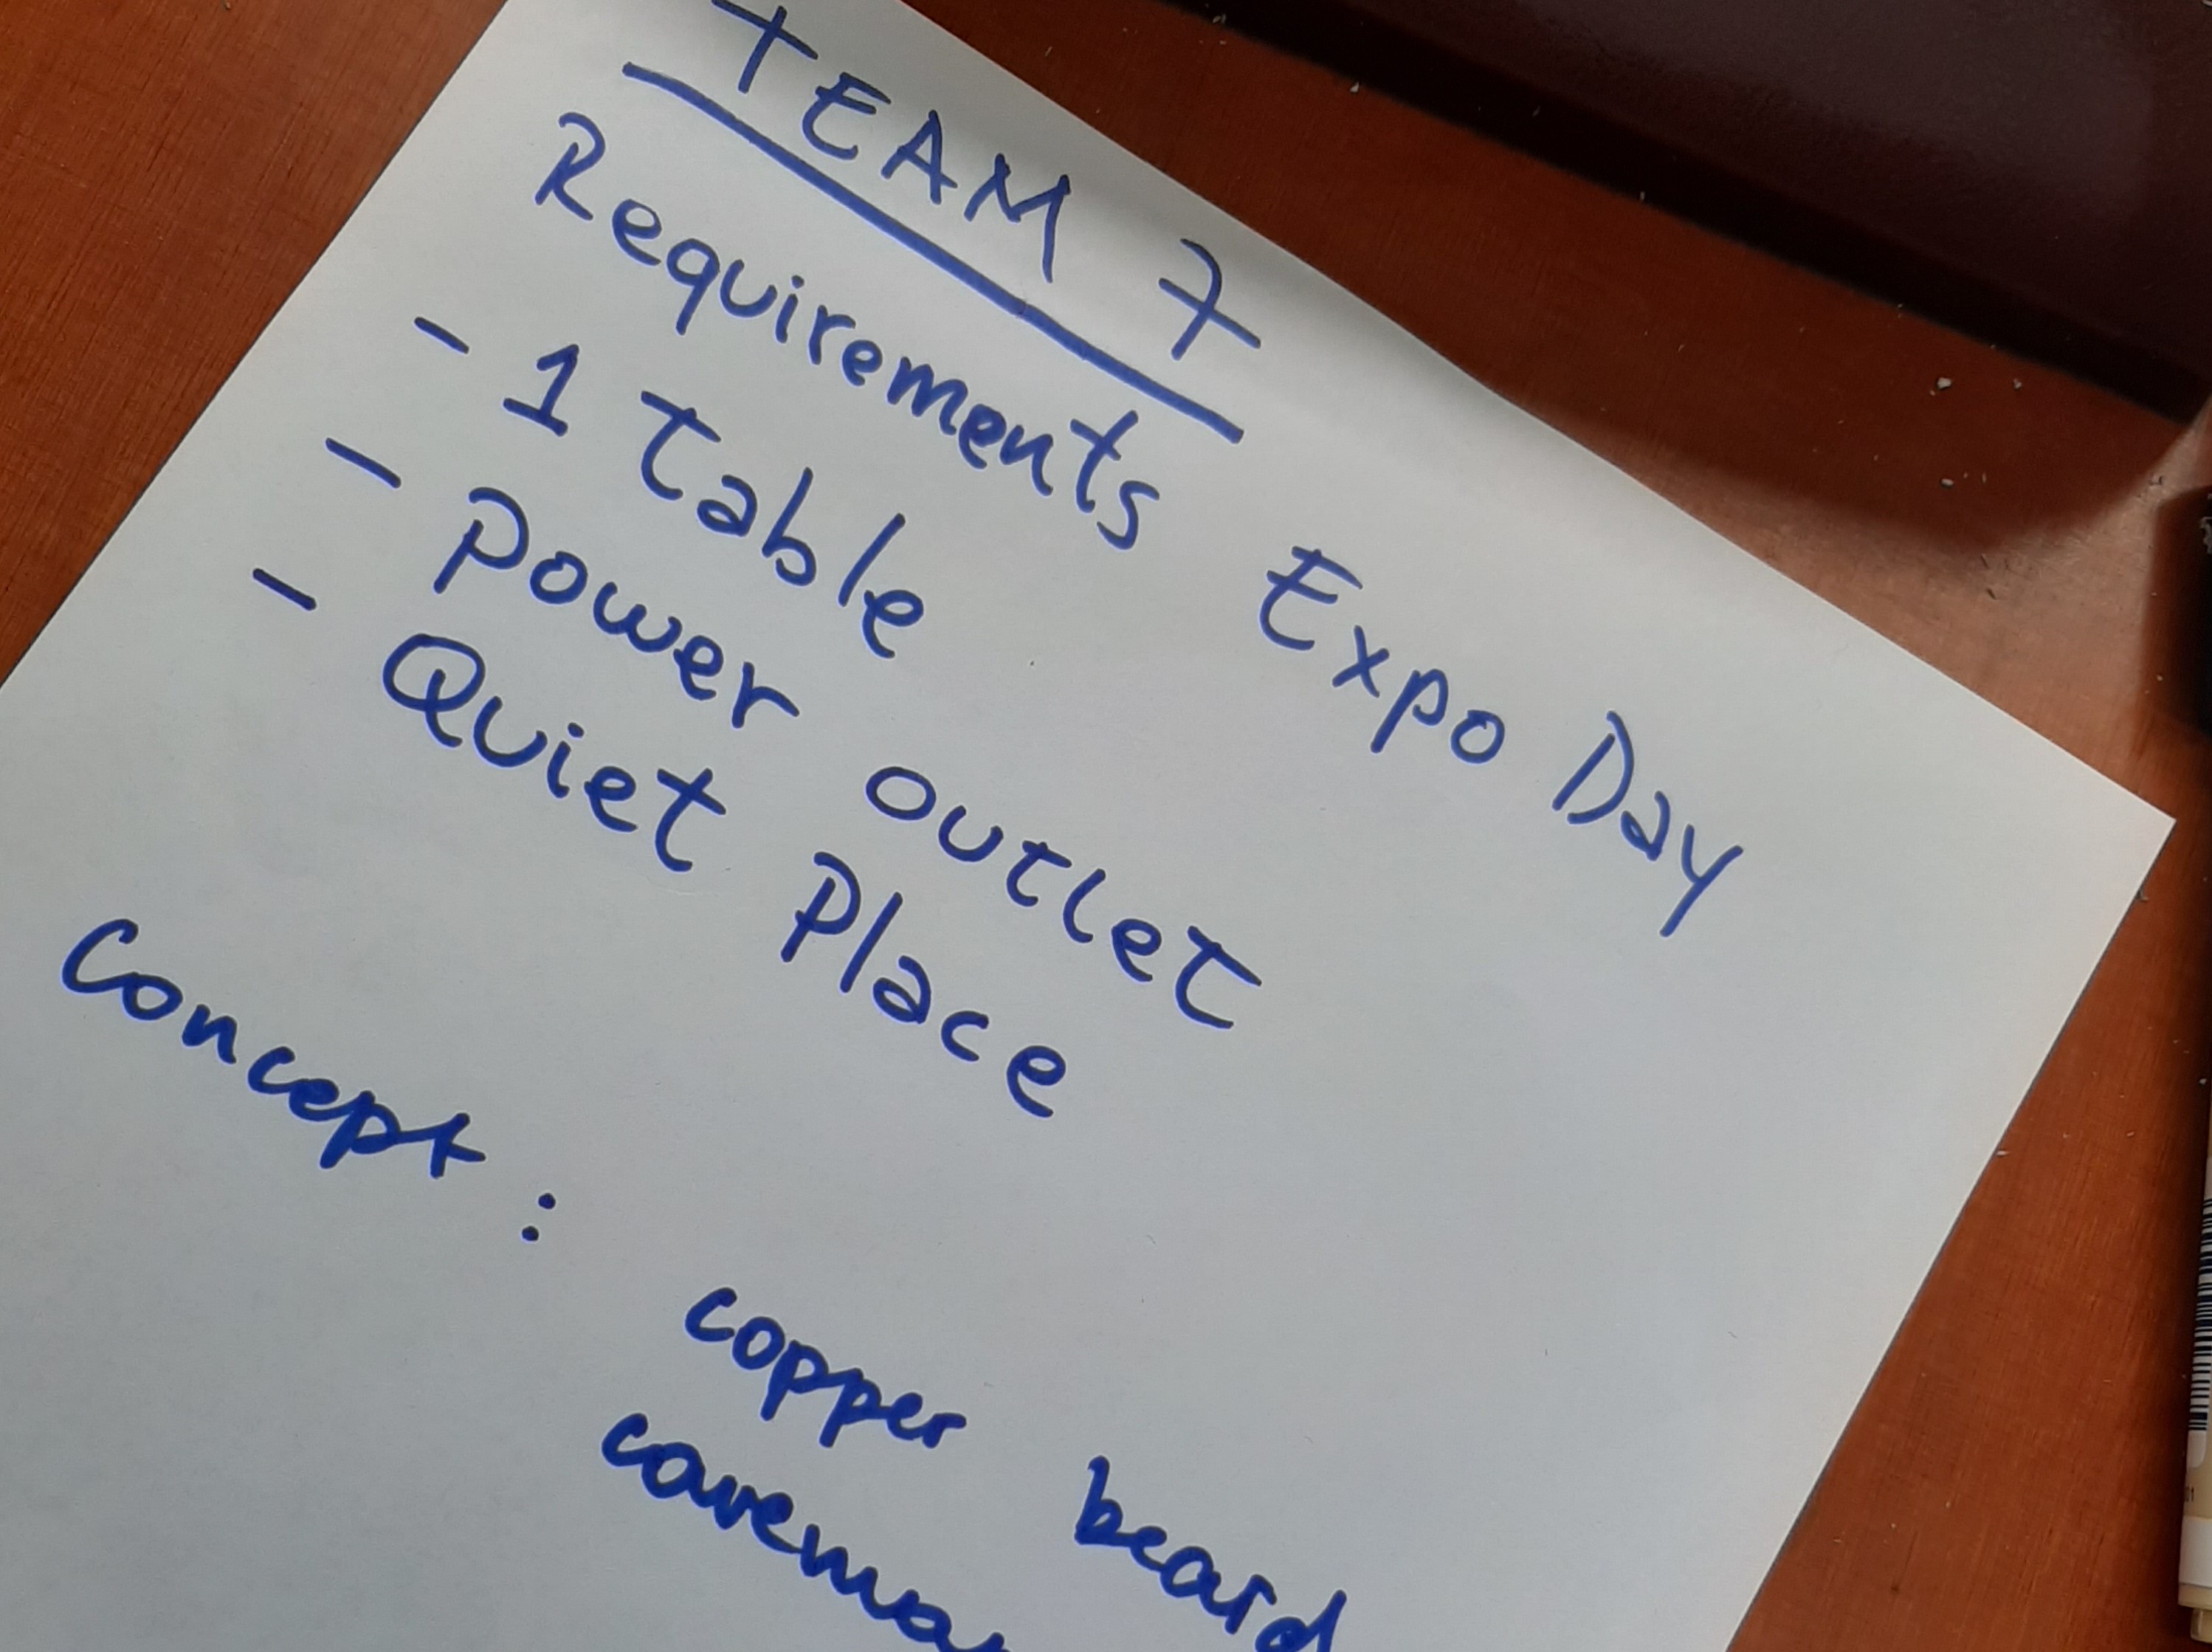 TEAM 7
Requirements Expo Day
- 1 Table
- Power outlet
- Quiet Place
Concept :
copper beard